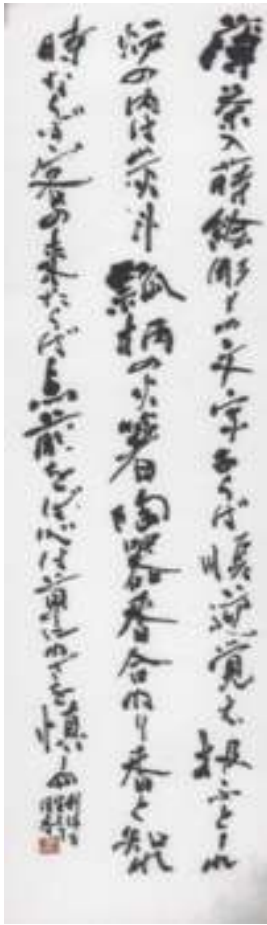 薄茶入蒔絵彫もの文字あらば順逆覚え扱ふとしれ
炉の内は炭斗瓢柄の火箸陶器香合ねり香と知れ
時ならず客の来たらば点前をば心は草にわざを慎め